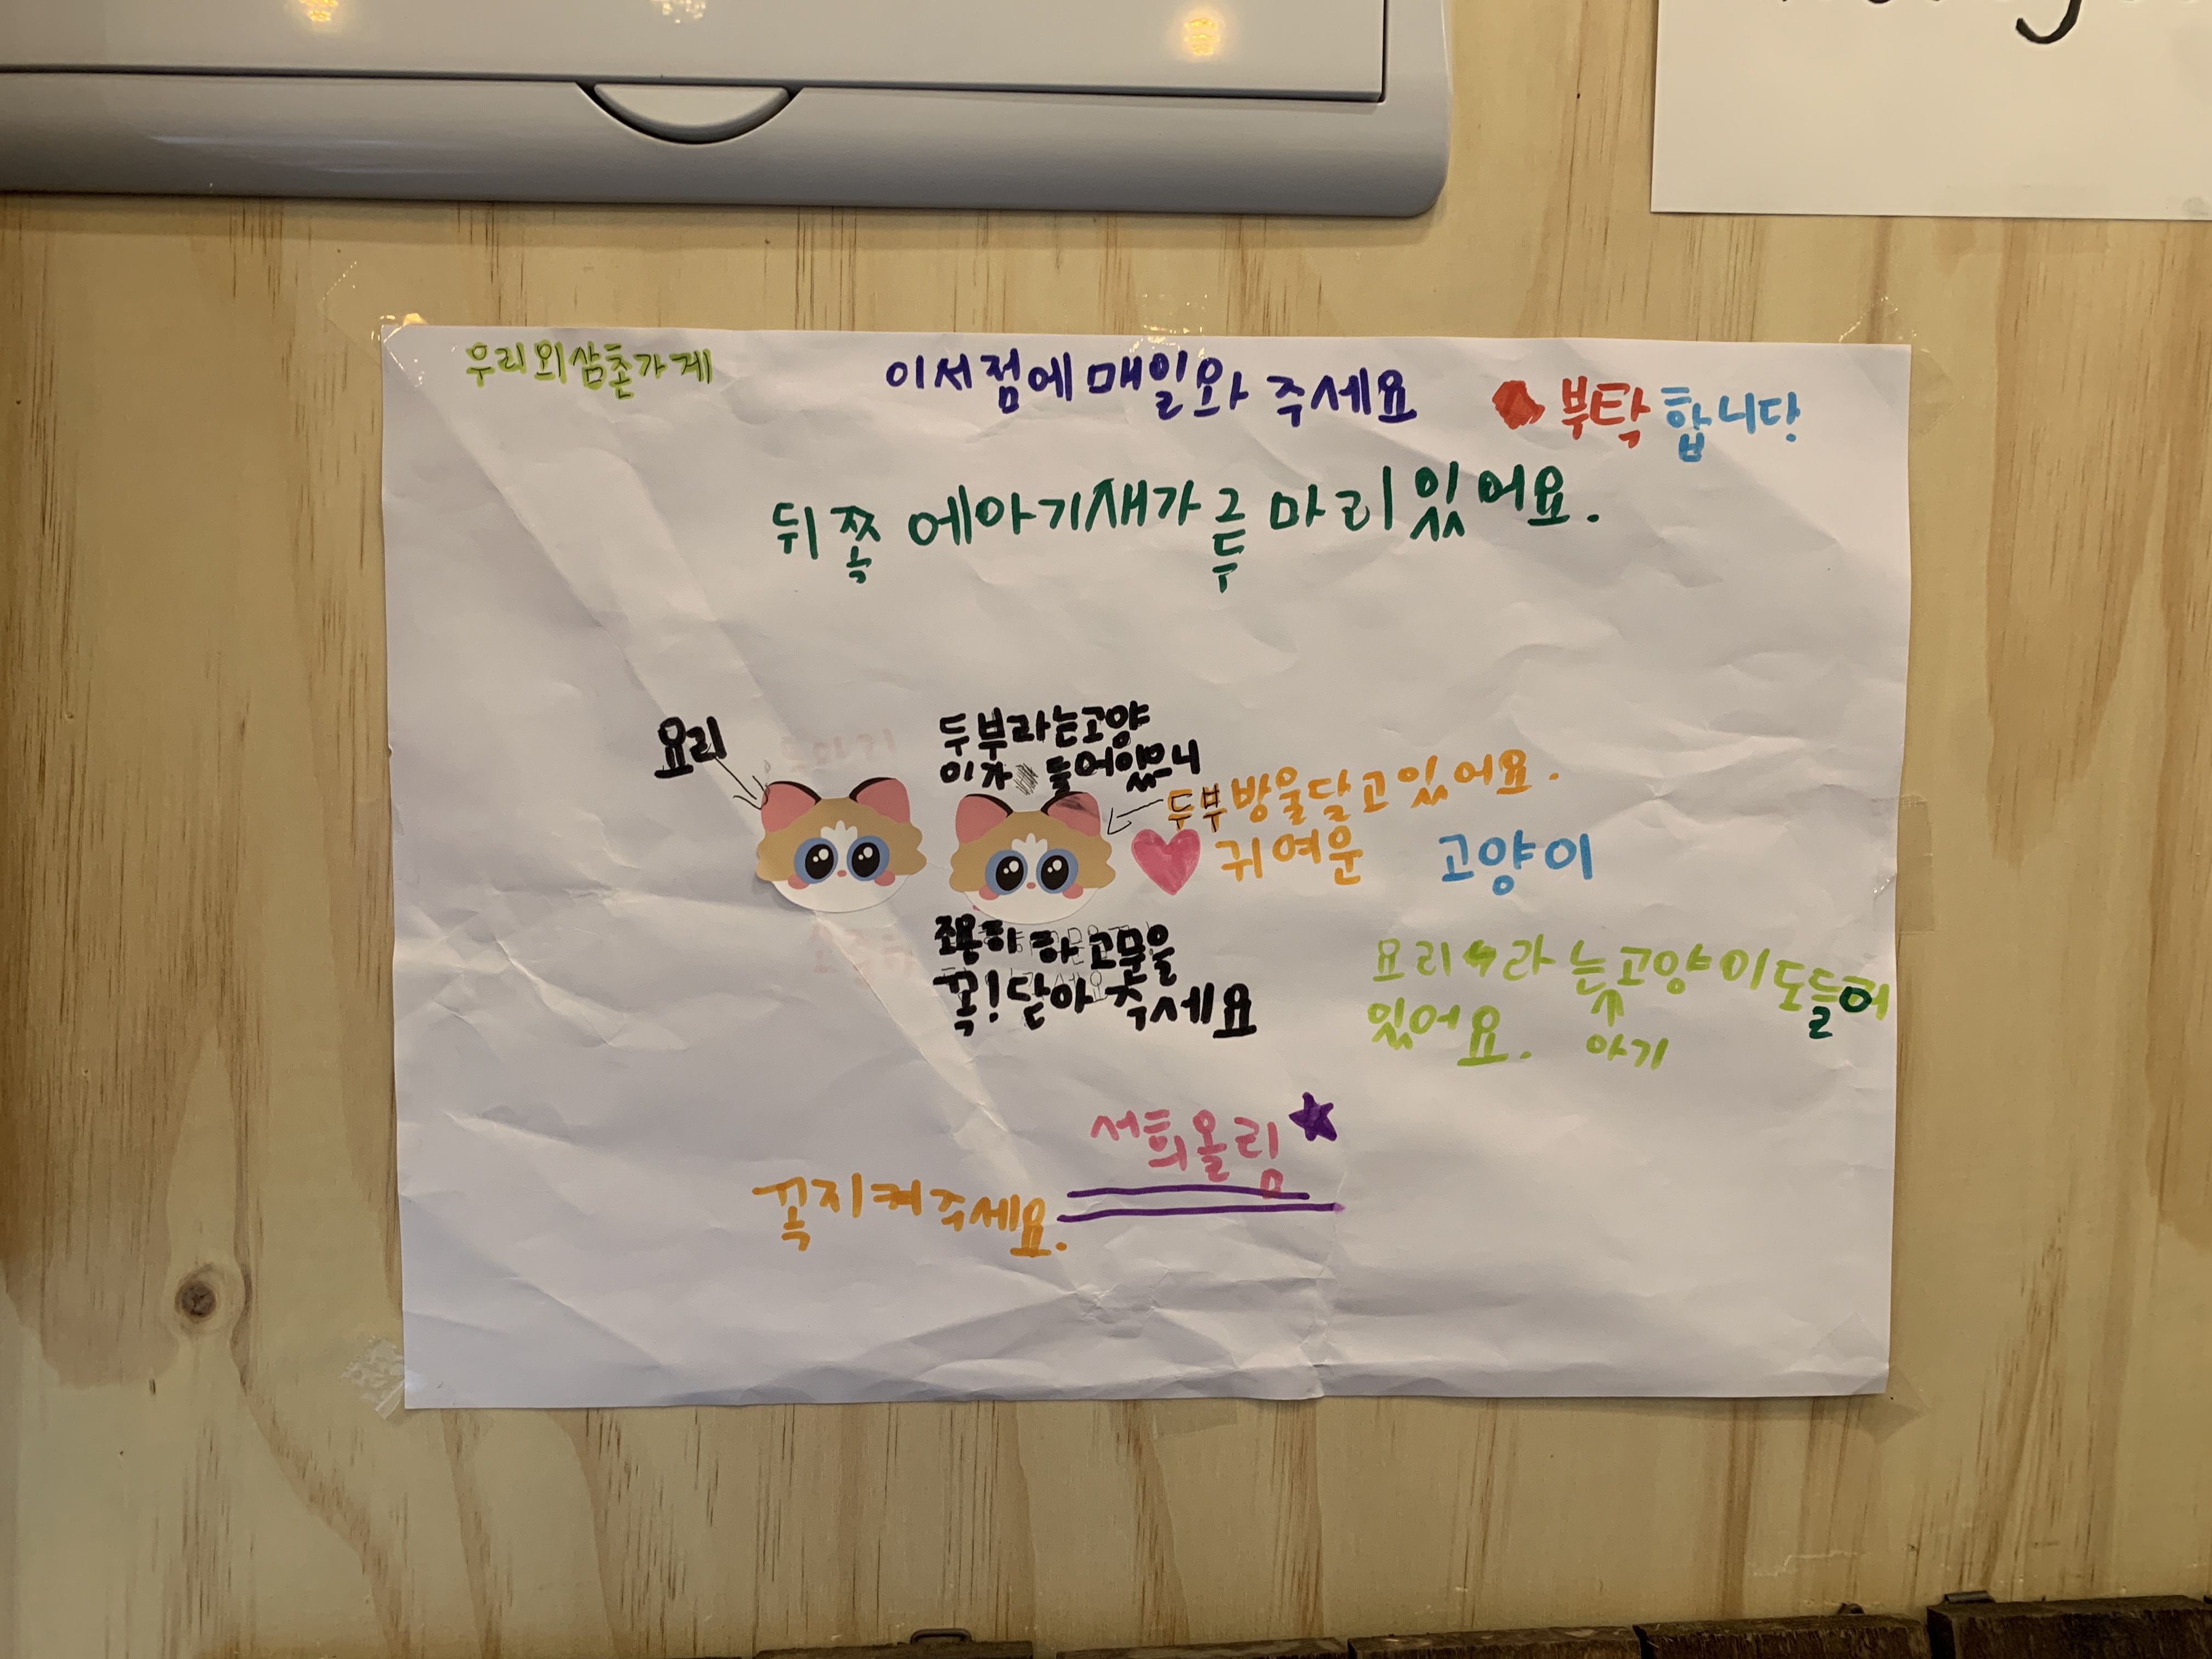 우리외삼촌가게
이서점에 매일와 주세요
부탁합니다
뒤쪽에아기새가 두 마리 있어요.
요리
두부라는고양
이가 들어있으니
두부방울달고있어요.
귀여운 고양이
조용히 하고문을
꼭! 닫아 주세요
요리라는고양이도들어
있어요. 아기
서희올림
꼭지켜주세요.